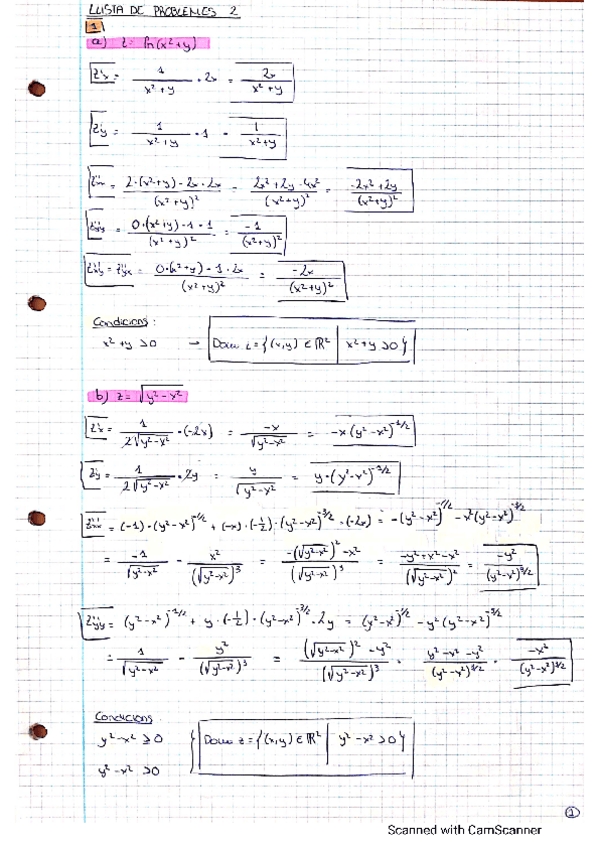 LLISTA DE PROBLEMES 2
1
a) z = ln(x²+y)
z'x = 1/(x²+y) · 2x = 2x/(x²+y)
z'y = 1/(x²+y) · 1 = 1/(x²+y)
z''xx = (2·(x²+y) - 2x·2x)/(x²+y)² = (2x²+2y-4x²)/(x²+y)² = (-2x²+2y)/(x²+y)²
z''yy = (0·(x²+y) - 1·1)/(x²+y)² = -1/(x²+y)²
z''xy = z''yx = (0·(x²+y) - 1·2x)/(x²+y)² = -2x/(x²+y)²
Condicions:
x²+y > 0 → Dom z = {(x,y) ∈ ℝ² | x²+y > 0}
b) z = √(y²-x²)
z'x = 1/(2√(y²-x²)) · (-2x) = -x/√(y²-x²) = -x(y²-x²)^(-1/2)
z'y = 1/(2√(y²-x²)) · 2y = y/√(y²-x²) = y·(y²-x²)^(-1/2)
z''xx = (-1)·(y²-x²)^(-1/2) + (-x)·(-1/2)·(y²-x²)^(-3/2)·(-2x) = -(y²-x²)^(-1/2) - x²(y²-x²)^(-3/2)
= -1/√(y²-x²) - x²/(√(y²-x²))³ = (-(√(y²-x²))² - x²)/(√(y²-x²))³ = (-y²+x²-x²)/(√(y²-x²))² = -y²/(y²-x²)^(3/2)
z''yy = (y²-x²)^(-1/2) + y·(-1/2)·(y²-x²)^(-3/2)·2y = (y²-x²)^(-1/2) - y²(y²-x²)^(-3/2)
= 1/√(y²-x²) - y²/(√(y²-x²))³ = ((√(y²-x²))² - y²)/(√(y²-x²))³ = (y²-x²-y²)/(y²-x²)^(3/2) = -x²/(y²-x²)^(3/2)
Condicions
y²-x² ≥ 0
y²-x² > 0 } Dom z = {(x,y) ∈ ℝ² | y²-x² > 0}
1
Scanned with CamScanner